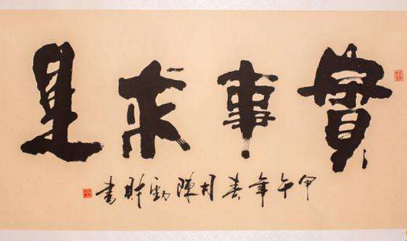 實事求是
甲午年春月陳書